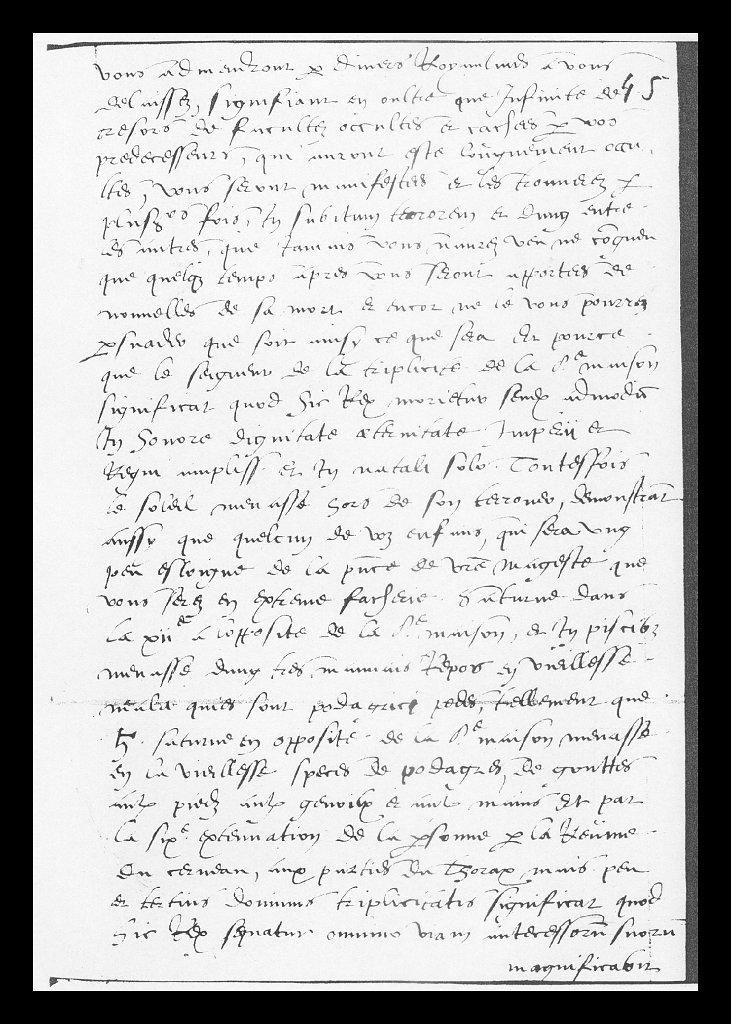 vous adviendront p divers Royaulmes a vous
delaissez, signifiant en oultre que Infinite de 45
tresors de facultez occultes et caches p voz
predecesseurs, qui auront este longuement occu
ltes, vous seront manifestes et les trouverez p
plusrs fois, In subitum terrorem et dung entre
les autres, que Iamais vous naurez veu ne congneu
que quelqz temps apres vous seront apportees de
nouvelles de sa mort et encor ne le vous pourrez
psuader que soit ainsy ce que sera Et pource
que le seigneur de la triplicite de la maison
significat quod hic Rex morietur senex admodu
In honore dignitate aeternitate Imperii et
Regni ampliss. et In natali solo. Toutesfois
le soleil menasse hors de son terrouer, demonstrant
aussy que quelcun de voz enfans, qui sera ung
peu esloigne de la pnce de vre Mageste que
vous serez en extreme facherie. Saturne dans
la xiie a lopposite de la maison, et In piscibz
menasse dung tres mauvais Repos en vieillesse
quies sont podagrici pedes, tellement que
♄. saturne en opposite de la maison menasse
en la vieillesse speces de podagres, de gouttes
aulx piedz aulx genoilx et aulx mains Et par
la sixe extenuation de la psonne p la Reume
du cerveau, aux parties du Thorax mais peu
et tertius dominus triplicitatis significat quod
hic Rex sequatur omnino viam antecessoru suoru
magnificabit